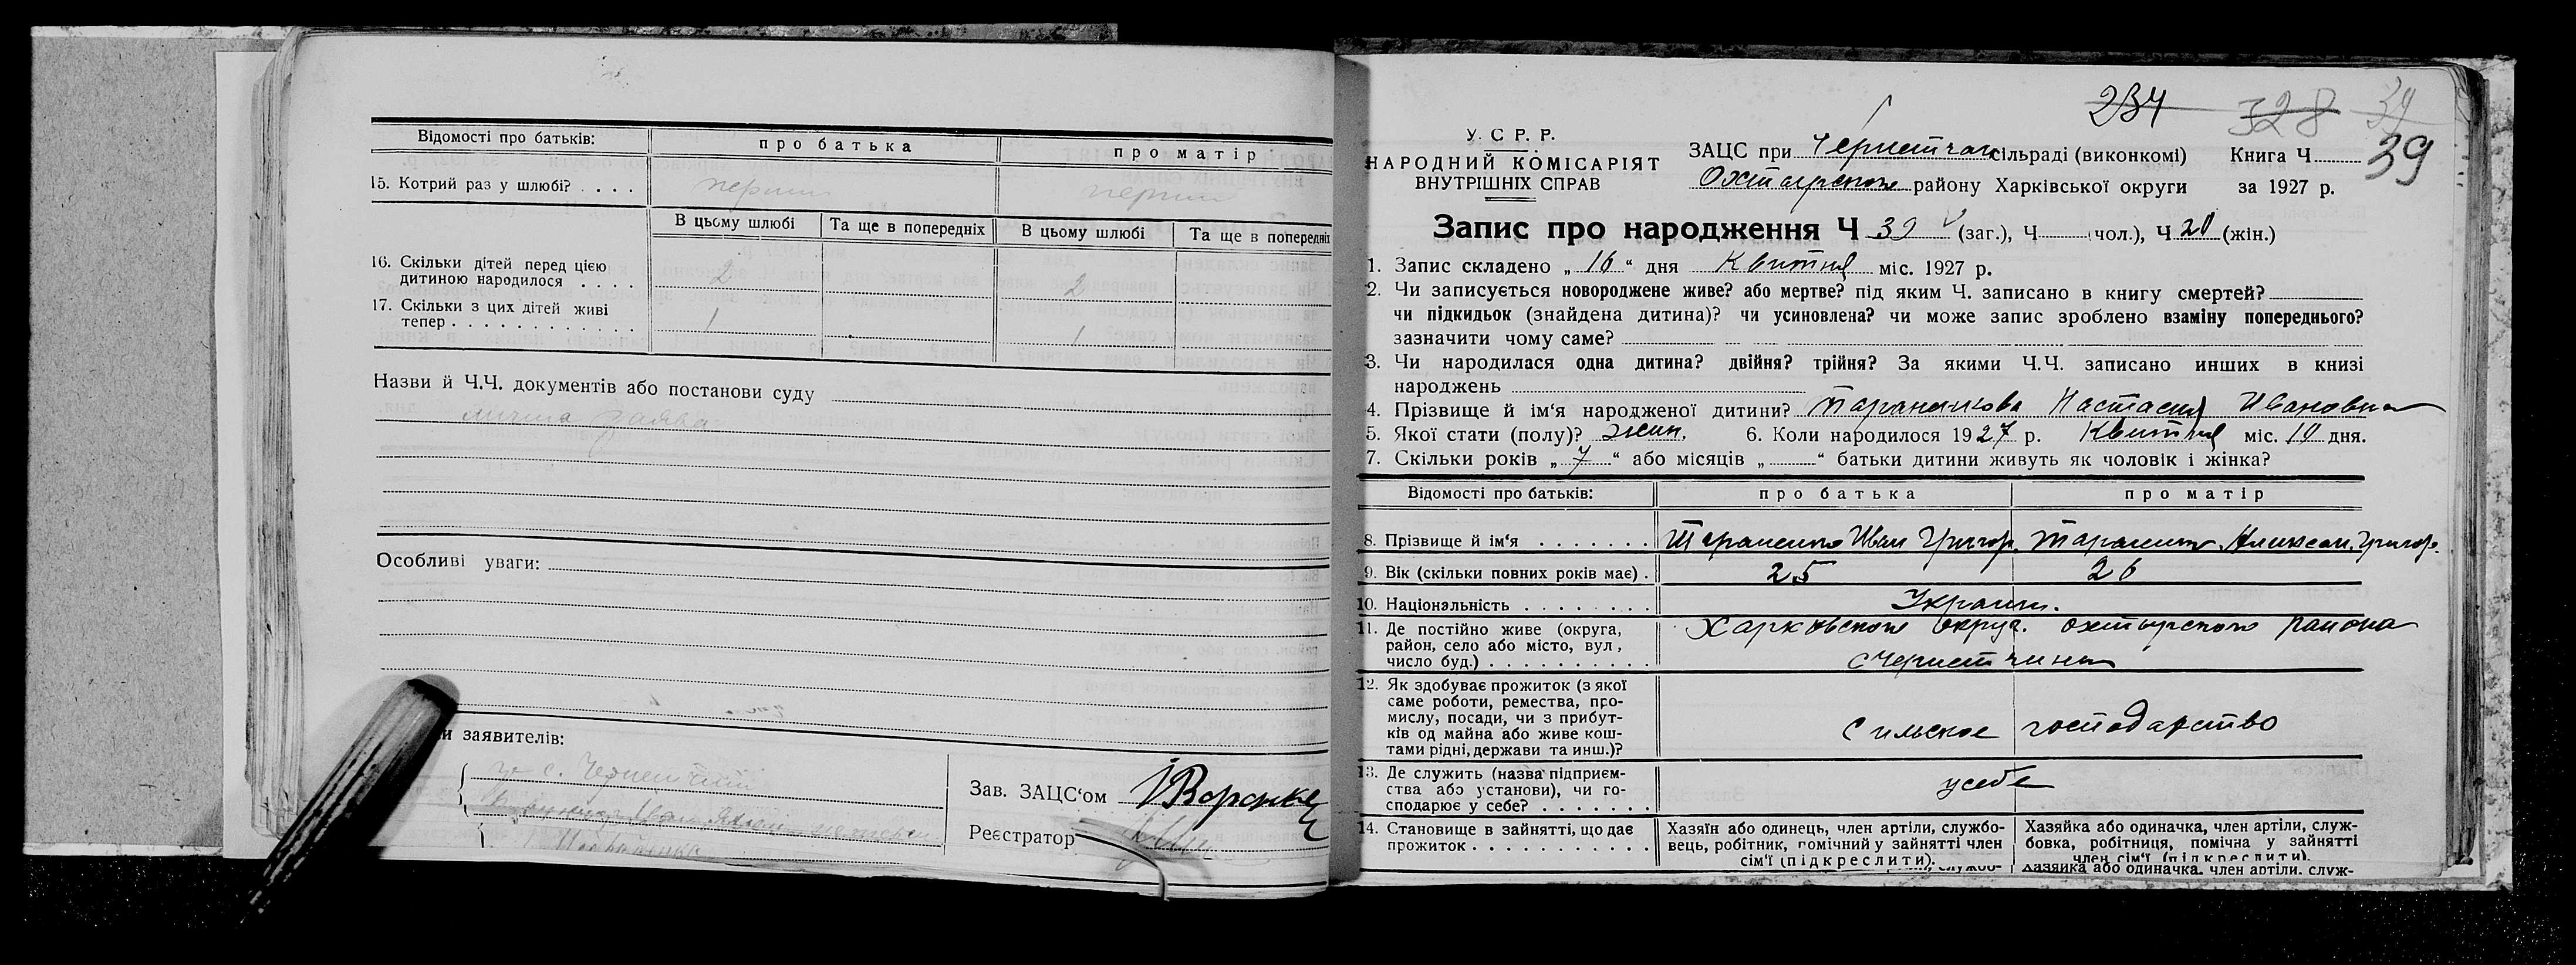 Відомості про батьків: про батька про матір
15. Котрий раз у шлюбі? . . . . перший перший
В цьому шлюбі Та ще в попередніх В цьому шлюбі Та ще в попередніх
16. Скільки дітей перед цією
дитиною народилося . . . . 2 2
17. Скільки з цих дітей живі
тепер . . . . . . . . . . . . 1 1
Назви й Ч.Ч. документів або постанови суду
заява
Особливі уваги:
и заявителів:
с.
Зав. ЗАЦС'ом
Реєстратор
234 328 39
39
У. С Р. Р.
НАРОДНИЙ КОМІСАРІЯТ
ВНУТРІШНІХ СПРАВ
ЗАЦС при сільраді (виконкомі) Книга Ч
району Харківської округи за 1927 р.
Запис про народження Ч 39 (заг.), Ч чол.), Ч 20 (жін.)
1. Запис складено „ 16 “ дня Квитня міс. 1927 р.
2. Чи записується новороджене живе? або мертве? під яким Ч. записано в книгу смертей?
чи підкидьок (знайдена дитина)? чи усиновлена? чи може запис зроблено взаміну попереднього?
зазначити чому саме?
3. Чи народилася одна дитина? двійня? трійня? За якими Ч.Ч. записано инших в книзі
народжень
4. Прізвище й ім'я народженої дитини? Настасия Ивановна
5. Якої стати (полу)? жин. 6. Коли народилося 1927 р. Квитня міс. 10 дня.
7. Скільки років „ 7 “ або місяців „ “ батьки дитини живуть як чоловік і жінка?
Відомості про батьків: про батька про матір
8. Прізвище й ім'я . . . . . . . Иван Григор. Григор.
9. Вік (скільки повних років має) . 25 26
10. Національність . . . . . . . . Украин.
11. Де постійно живе (округа, Харковской округ. района
район, село або місто, вул,
число буд.) . . . . . . . . . . .
12. Як здобуває прожиток (з якої
саме роботи, ремества, про-
мислу, посади, чи з прибут-
ків од майна або живе кош- сильское господарство
тами рідні, держави та инш.)?
13. Де служить (назва підприєм-
ства або установи), чи го- у себе
сподарює у себе? . . . . . . .
14. Становище в зайнятті, що дає Хазяїн або одинець, член артіли, службо- Хазяйка або одиначка, член артіли, служ-
прожиток . . . . . . . . . . . вець, робітник, помічний у зайнятті член бовка, робітниця, помічна у зайнятті
сім'ї (підкреслити). член сім'ї (підкреслити).
Хазяйка або одиначка, член артіли, служ-